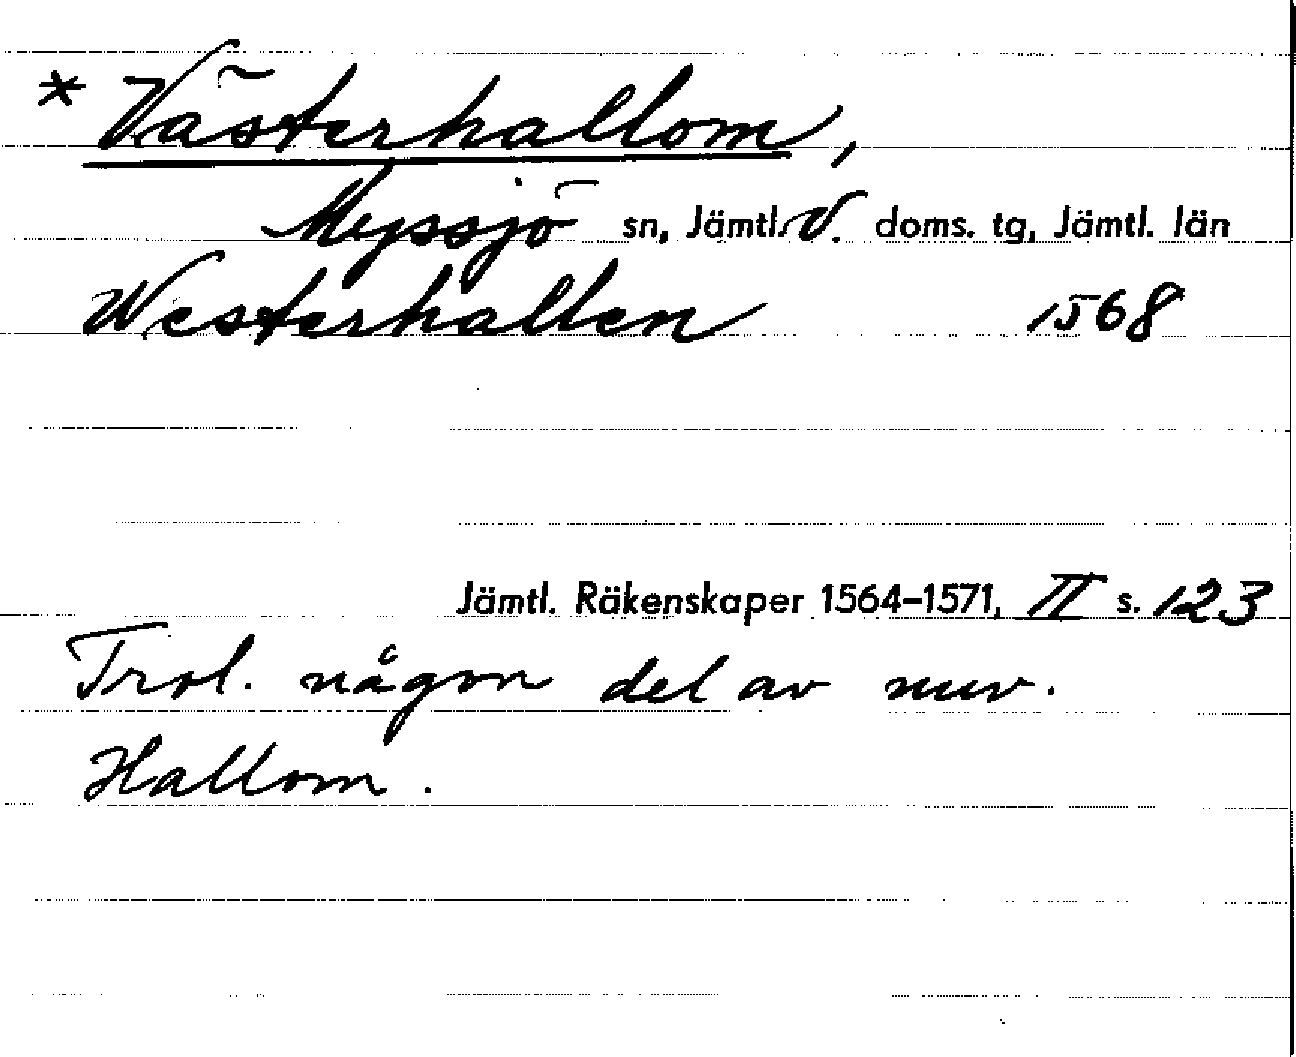 * Västerhallom,
Myssjö sn, Jämtl. V. doms. tg, Jämtl. län
Westerhallen 1568
Jämtl. Räkenskaper 1564–1571, II s. 123
Trol. någon del av nuv.
Hallom.